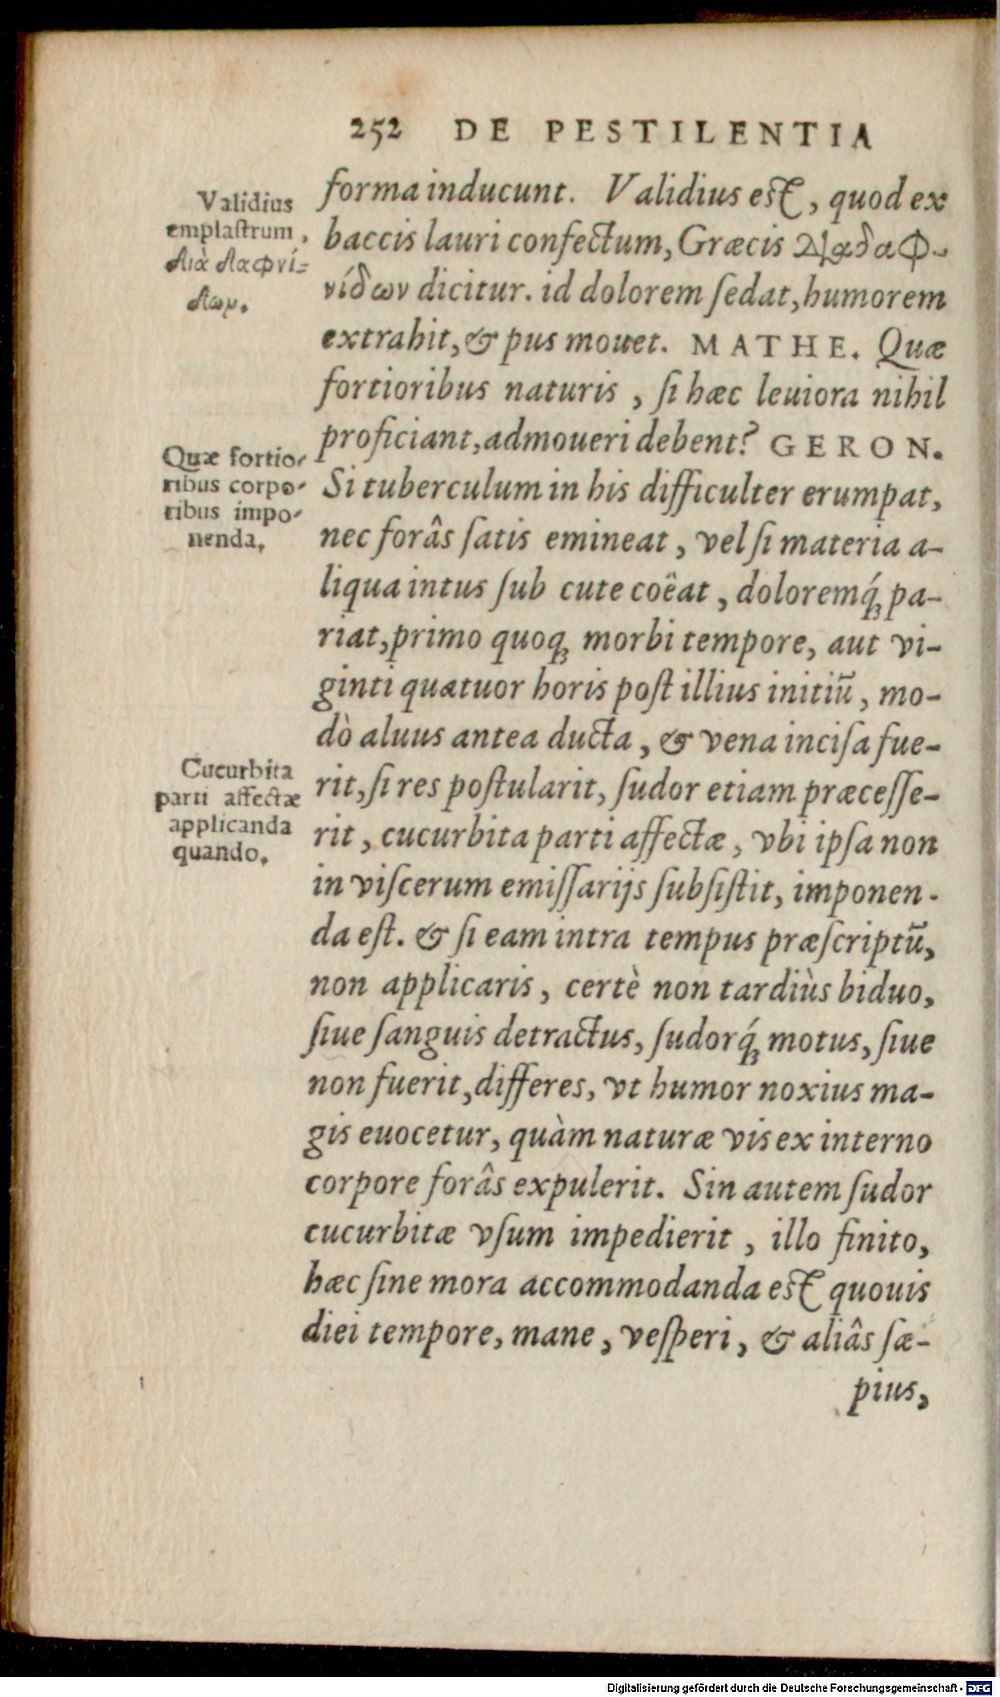 252 DE PESTILENTIA
forma inducunt. Validius est, quod ex
baccis lauri confectum, Græcis Διαδαφ-
νίδων dicitur. id dolorem sedat, humorem
extrahit, & pus mouet. MATHE. Quæ
fortioribus naturis, si hæc leuiora nihil
proficiant, admoueri debent? GERON.
Si tuberculum in his difficulter erumpat,
nec forâs satis emineat, vel si materia a-
liqua intus sub cute coëat, doloremq́; pa-
riat, primo quoq; morbi tempore, aut vi-
ginti quatuor horis post illius initiū, mo-
dò aluus antea ducta, & vena incisa fue-
rit, si res postularit, sudor etiam præcesse-
rit, cucurbita parti affectæ, vbi ipsa non
in viscerum emissarijs subsistit, imponen-
da est. & si eam intra tempus præscriptū,
non applicaris, certè non tardiùs biduo,
siue sanguis detractus, sudorq́; motus, siue
non fuerit, differes, vt humor noxius ma-
gis euocetur, quàm naturæ vis ex interno
corpore forâs expulerit. Sin autem sudor
cucurbitæ vsum impedierit, illo finito,
hæc sine mora accommodanda est quouis
diei tempore, mane, vesperi, & aliâs sæ-
pius,
Validius
emplastrum,
διὰ δαφνί-
δων.
Quæ fortio-
ribus corpo-
ribus impo-
nenda.
Cucurbita
parti affectæ
applicanda
quando.
Digitalisierung gefördert durch die Deutsche Forschungsgemeinschaft - DFG